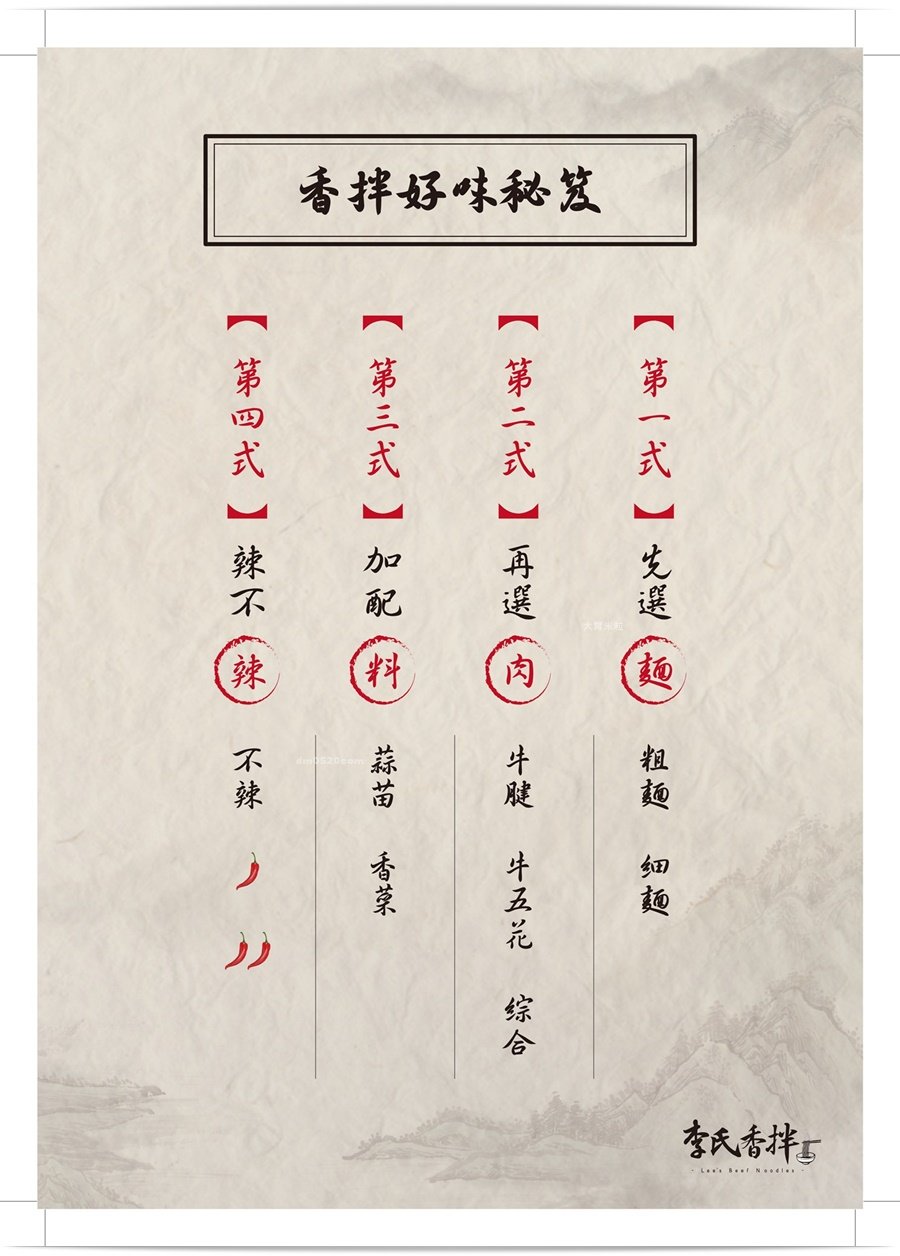 香拌好味秘笈
【第一式】
先選麵
粗麵 細麵
【第二式】
再選肉
牛腱 牛五花 綜合
【第三式】
加配料
蒜苗 香菜
【第四式】
辣不辣
不辣
李氏香拌
- Lee's Beef Noodles -
大寶米粒
dm0520.com